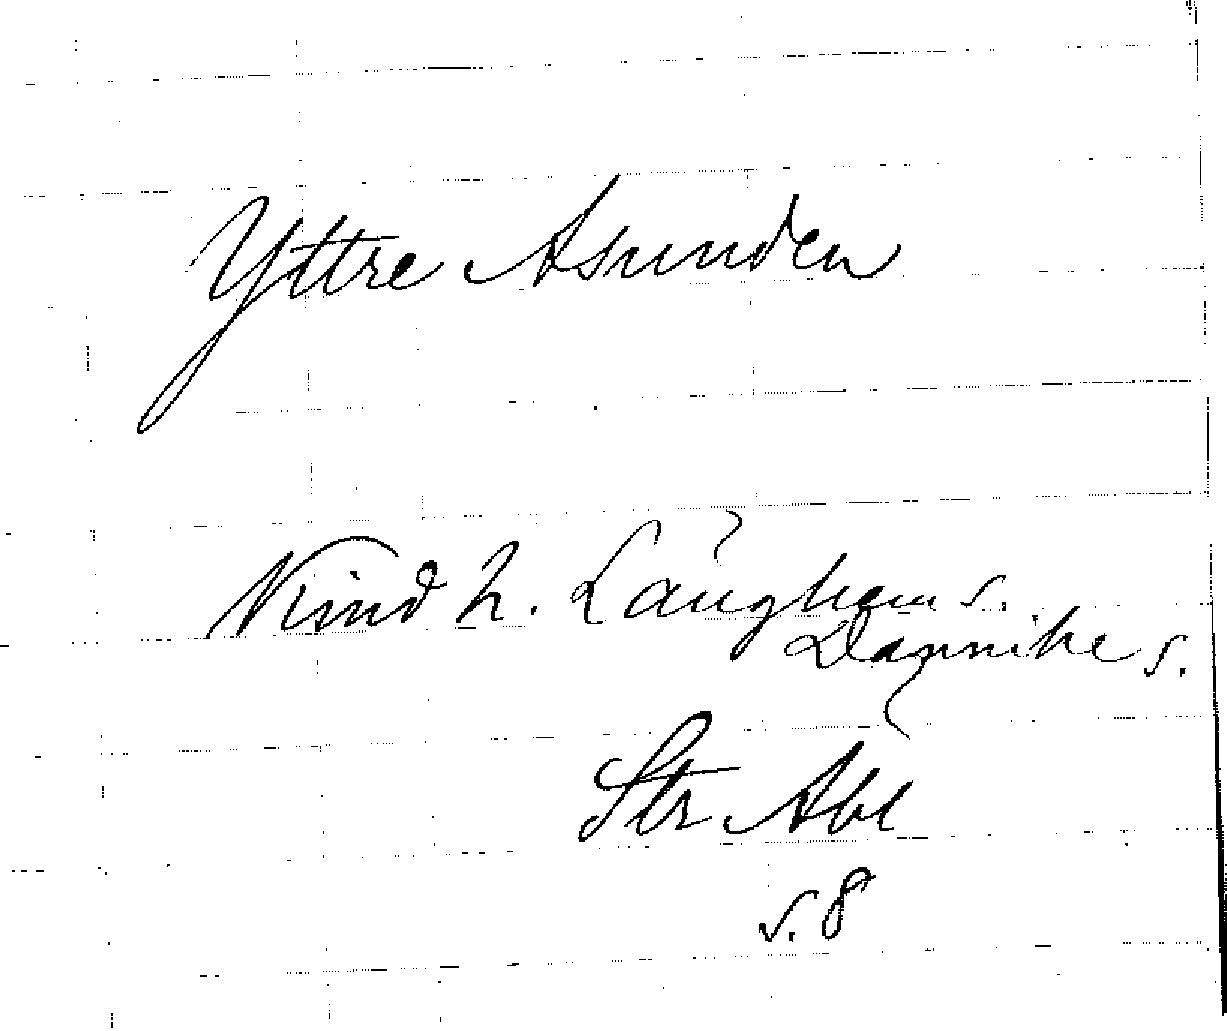 Yttre Asunden
Kind h. Länghem s.
Dannike s.
Str Abl
s. 8